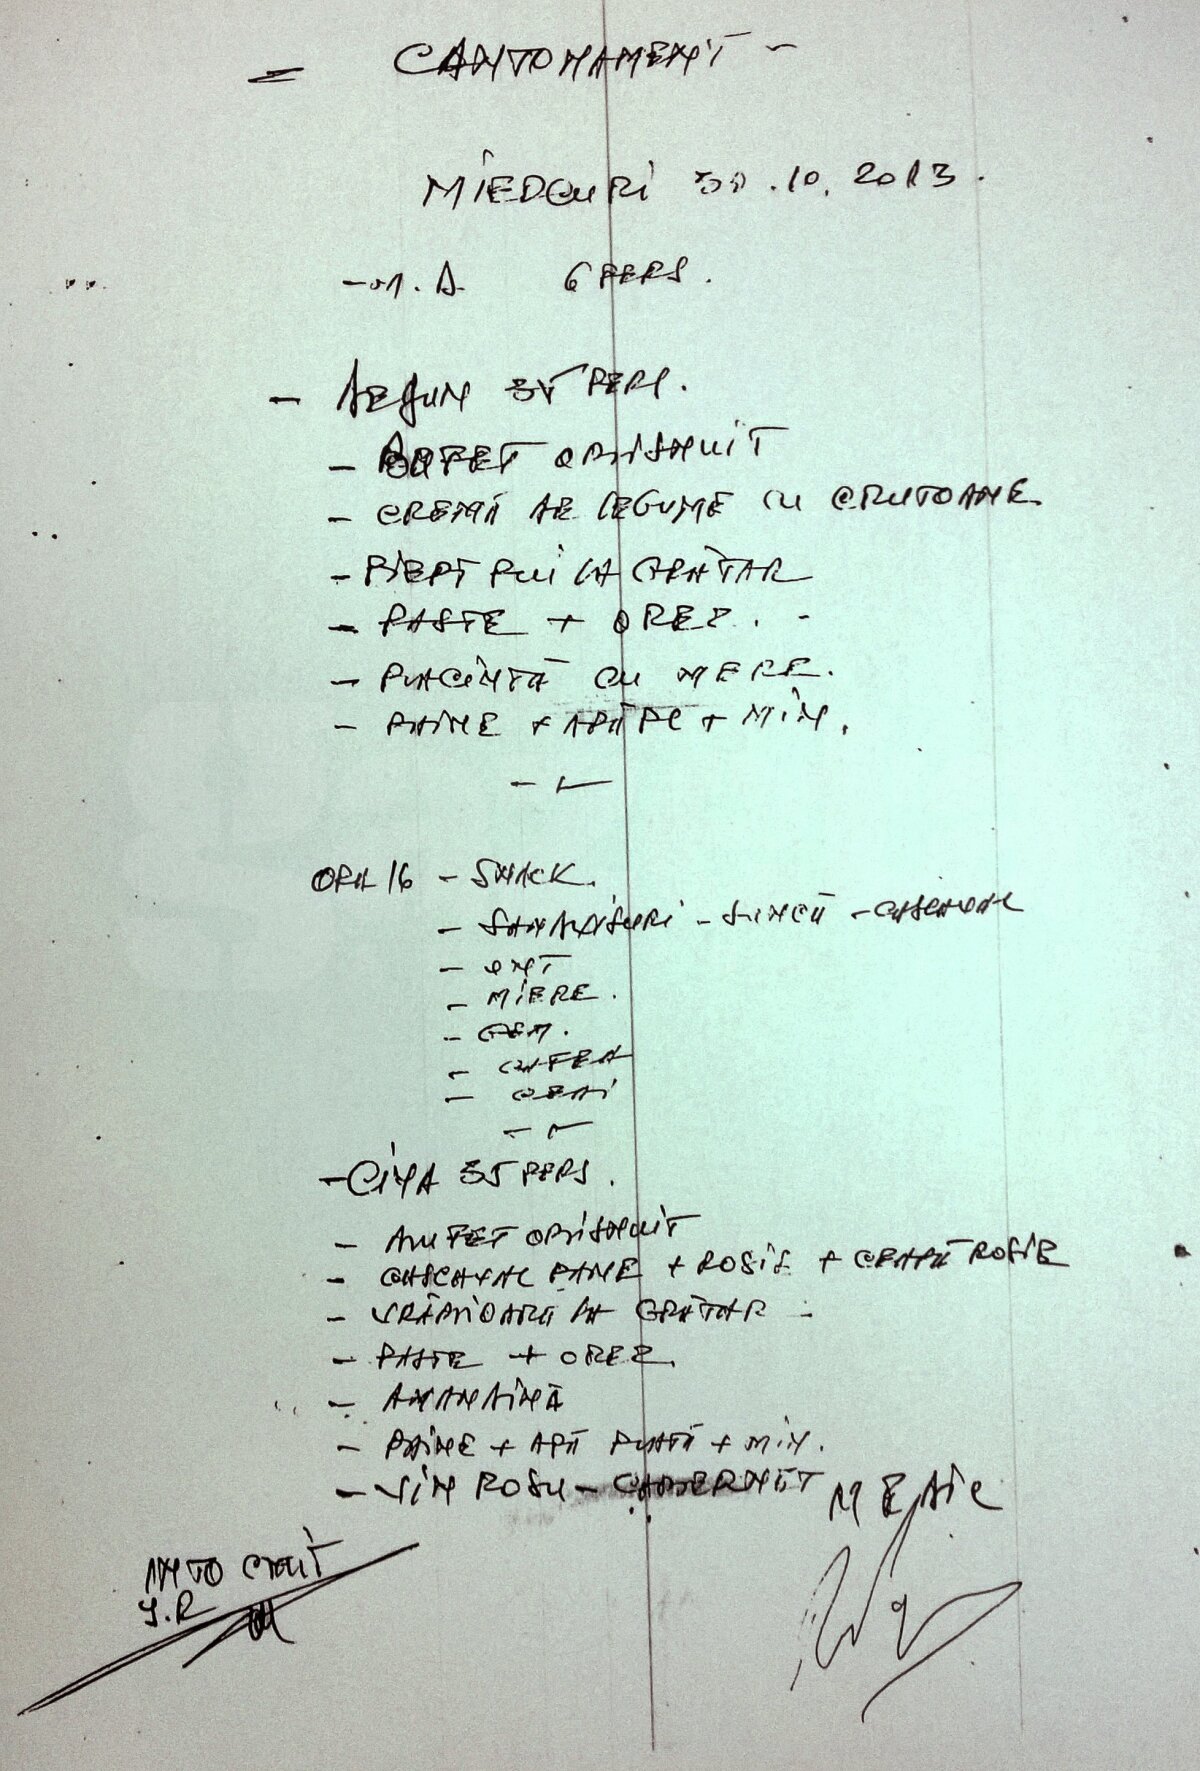 - CANTONAMENT -
MIERCURI 30.10.2013.
6 PERS.
- DEJUN 35 PERS.
- BUFET OBISNUIT
- CREMĂ DE LEGUME CU CRUTOANE
- PIEPT PUI LA GRĂTAR
- PASTE + OREZ. -
- PLACINTĂ CU MERE.
- PAINE + APĂ PL + MIN.
ORA 16 - SNACK.
- SANDVISURI - SUNCĂ - CASCAVAL
- UNT
- MIERE.
- GEM.
- CAFEA
- CEAI
- CINA 35 PERS.
- BUFET OBISNUIT
- CASCAVAL PANE + ROSII + CEAPĂ ROSIE
- VRĂBIOARĂ LA GRĂTAR -
- PASTE + OREZ.
- BANANE
- PAINE + APĂ PLATĂ + MIN.
- VIN ROSU - CABERNET
MEDIC
ANTO CRUIT